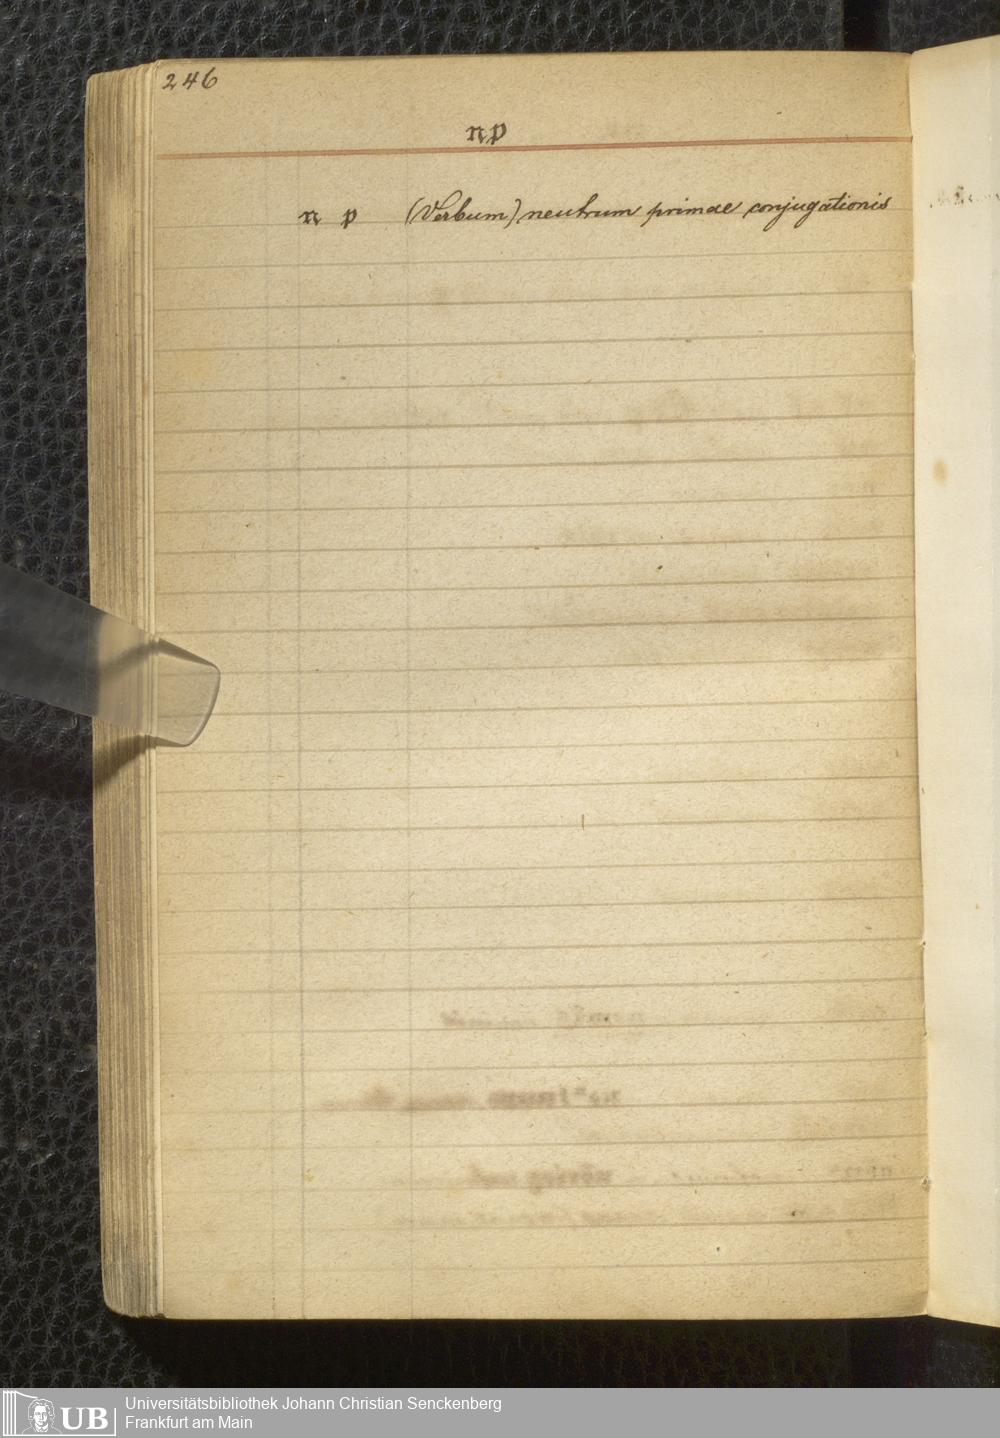 246
np
n p (Verbum) neutrum primae conjugationis
UB Universitätsbibliothek Johann Christian Senckenberg
Frankfurt am Main